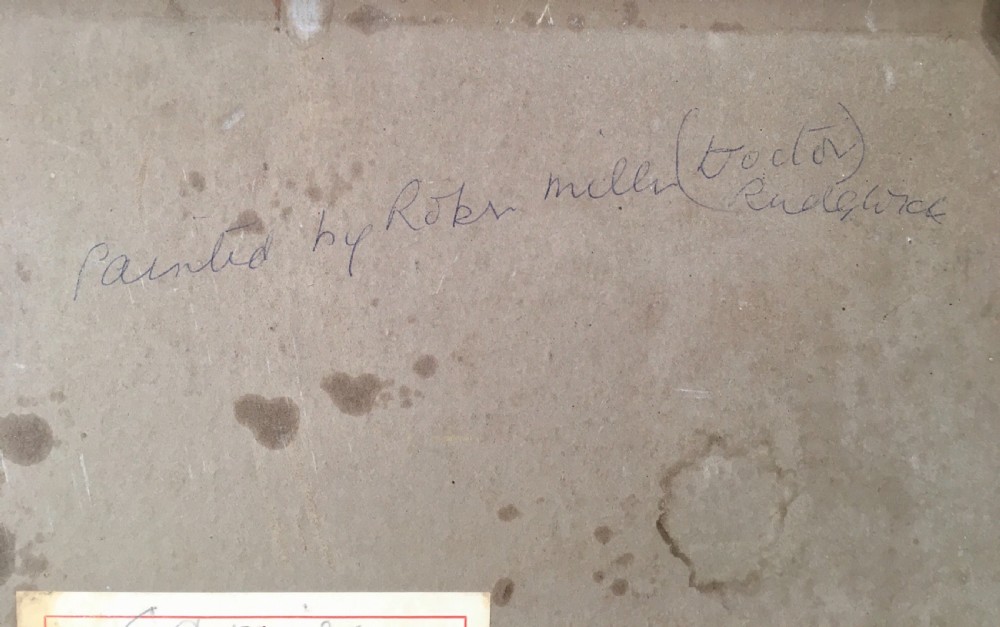 Painted by Robin Miller (Doctor)
Rudgwick